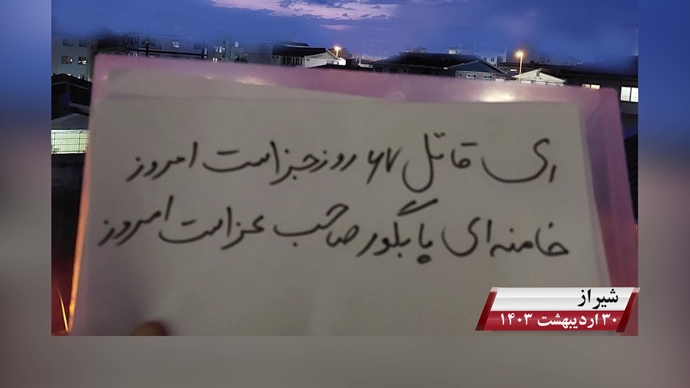 ای قاتل ۶۷ روز جزاست امروز
خامنه‌ای پا بگور صاحب عزاست امروز
شیراز
۳۰ اردیبهشت ۱۴۰۳